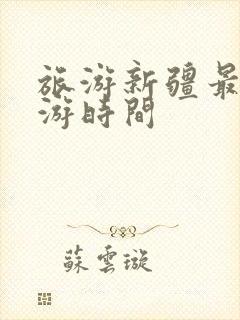 旅游新疆最
游時間
蘇雲璇